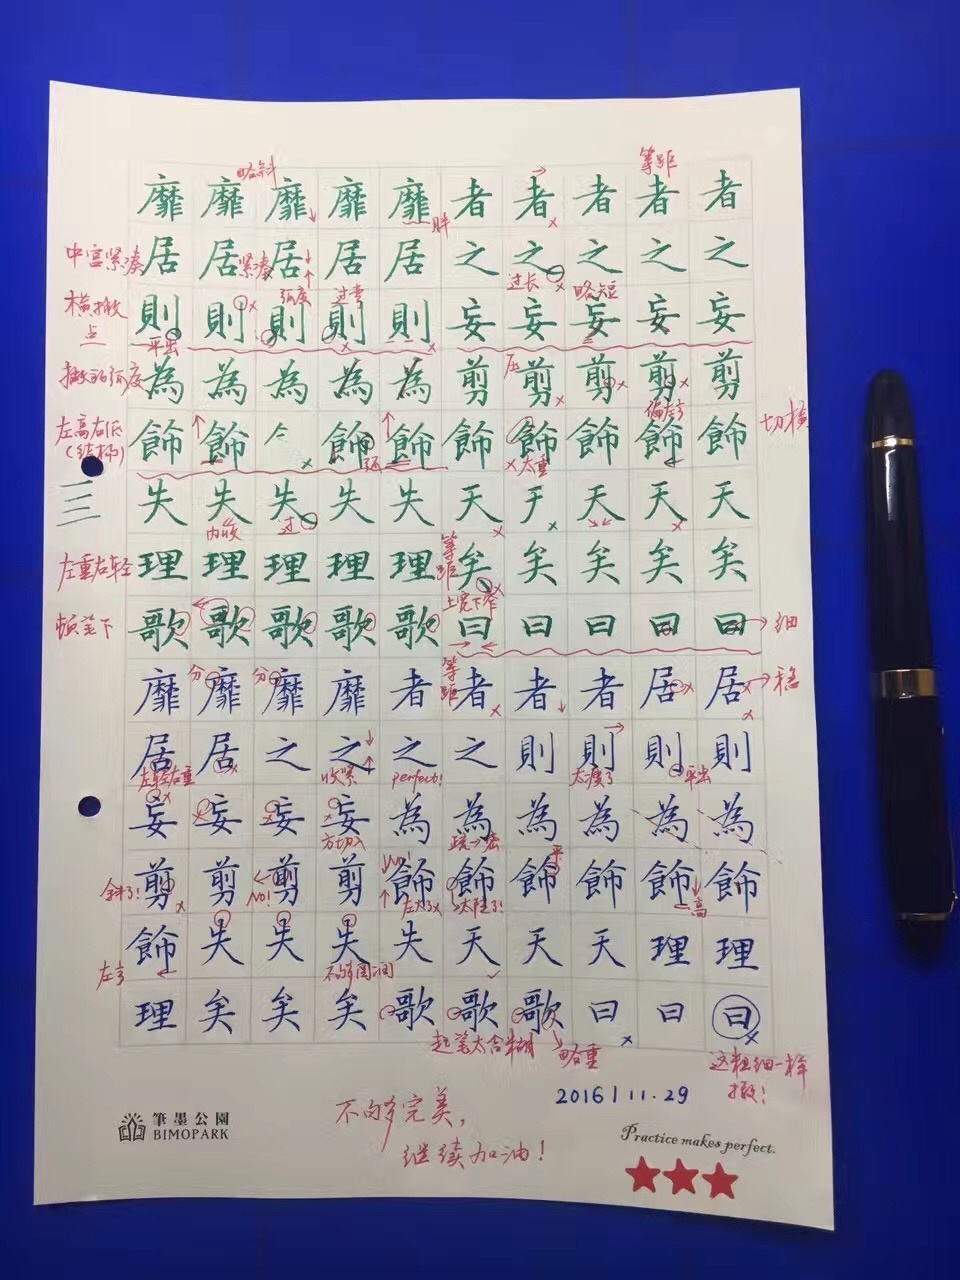 略斜
等距
靡靡靡靡靡者者者者者
胖
中宫紧凑
居居居居居之之之之之
紧凑
弧度
过弯
过长
略短
横撇
則則則則則妄妄妄妄妄
平出
撇的弧度
為為為為為剪剪剪剪剪
压
偏左
左高右低
(结构)
飾飾飾飾飾飾飾飾飾
切横
太重
三
失失失失失天天天天
内收
过
左重右轻
理理理理理矣矣矣矣矣
等距
上宽下窄
顿笔下
歌歌歌歌歌曰曰曰曰曰
细
分
分
靡靡靡靡者者者者居居
等距
稳
居居之之之之則則則則
左轻右重
收紧
perfect!
太瘦了
平出
妄妄妄妄為為為為為為
方切入
疏一密
平
余斜了!
剪剪剪剪飾飾飾飾飾飾
No!
高
飾失失失失天天天理理
不够圆润
理矣矣矣歌歌歌曰曰曰
起笔太含糊
略重
这粗细一样
撇!
2016/11.29
不够完美,
继续加油!
筆墨公園
BIMOPARK
Practice makes perfect.